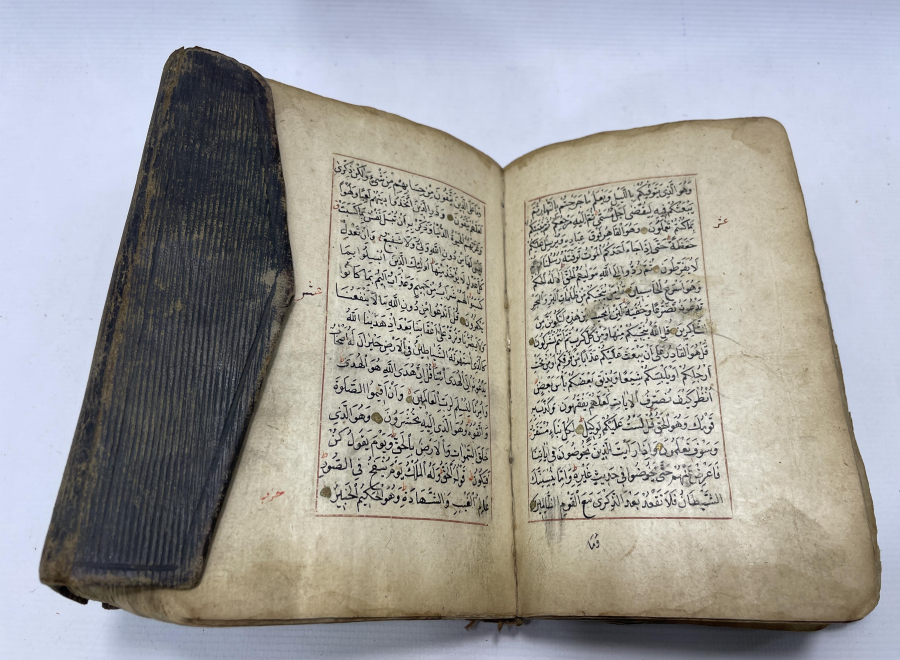 وهو الذي يتوفيكم بالليل ويعلم ما جرحتم بالنهار ثم
يبعثكم فيه ليقضى اجل مسمى ثم اليه مرجعكم ثم ينبئكم
بما كنتم تعملون وهو القاهر فوق عباده ويرسل عليكم
حفظة حتى اذا جاء احدكم الموت توفته رسلنا وهم
لا يفرطون ثم ردوا الى الله موليهم الحق الا له الحكم
وهو اسرع الحاسبين قل من ينجيكم من ظلمات البر والبحر
تدعونه تضرعا وخفية لئن انجينا من هذه لنكونن من
الشاكرين قل الله ينجيكم منها ومن كل كرب ثم انتم تشركون
قل هو القادر على ان يبعث عليكم عذابا من فوقكم او من تحت
ارجلكم او يلبسكم شيعا ويذيق بعضكم باس بعض
انظر كيف نصرف الايات لعلهم يفقهون وكذب به
قومك وهو الحق قل لست عليكم بوكيل لكل نبا مستقر
وسوف تعلمون واذا رايت الذين يخوضون في اياتنا
فاعرض عنهم حتى يخوضوا في حديث غيره واما ينسينك
الشيطان فلا تقعد بعد الذكرى مع القوم الظالمين
وما
عشر
وما على الذين يتقون من حسابهم من شئ ولكن ذكرى
لعلهم يتقون وذر الذين اتخذوا دينهم لعبا ولهوا
وغرتهم الحيوة الدنيا وذكر به ان تبسل نفس بما كسبت
ليس لها من دون الله ولي ولا شفيع وان تعدل
كل عدل لا يؤخذ منها اولئك الذين ابسلوا بما
كسبوا لهم شراب من حميم وعذاب اليم بما كانوا
يكفرون قل اندعوا من دون الله ما لا ينفعنا
ولا يضرنا ونرد على اعقابنا بعد اذ هدينا الله
كالذي استهوته الشياطين في الارض حيران له اصحاب
يدعونه الى الهدى ائتنا قل ان هدى الله هو الهدى
وامرنا لنسلم لرب العالمين وان اقيموا الصلوة
واتقوه وهو الذي اليه تحشرون وهو الذي
خلق السموات والارض بالحق ويوم يقول كن
فيكون قوله الحق وله الملك يوم ينفخ في الصور
عالم الغيب والشهادة وهو الحكيم الخبير
عشر
حزب